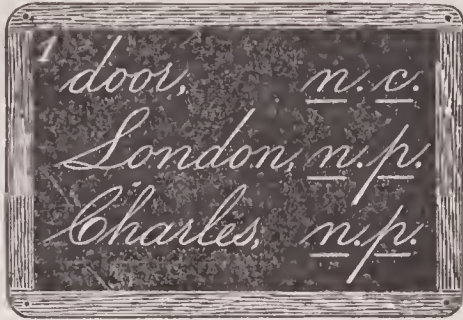 1
door, n. c.
London, n. p.
Charles, n. p.